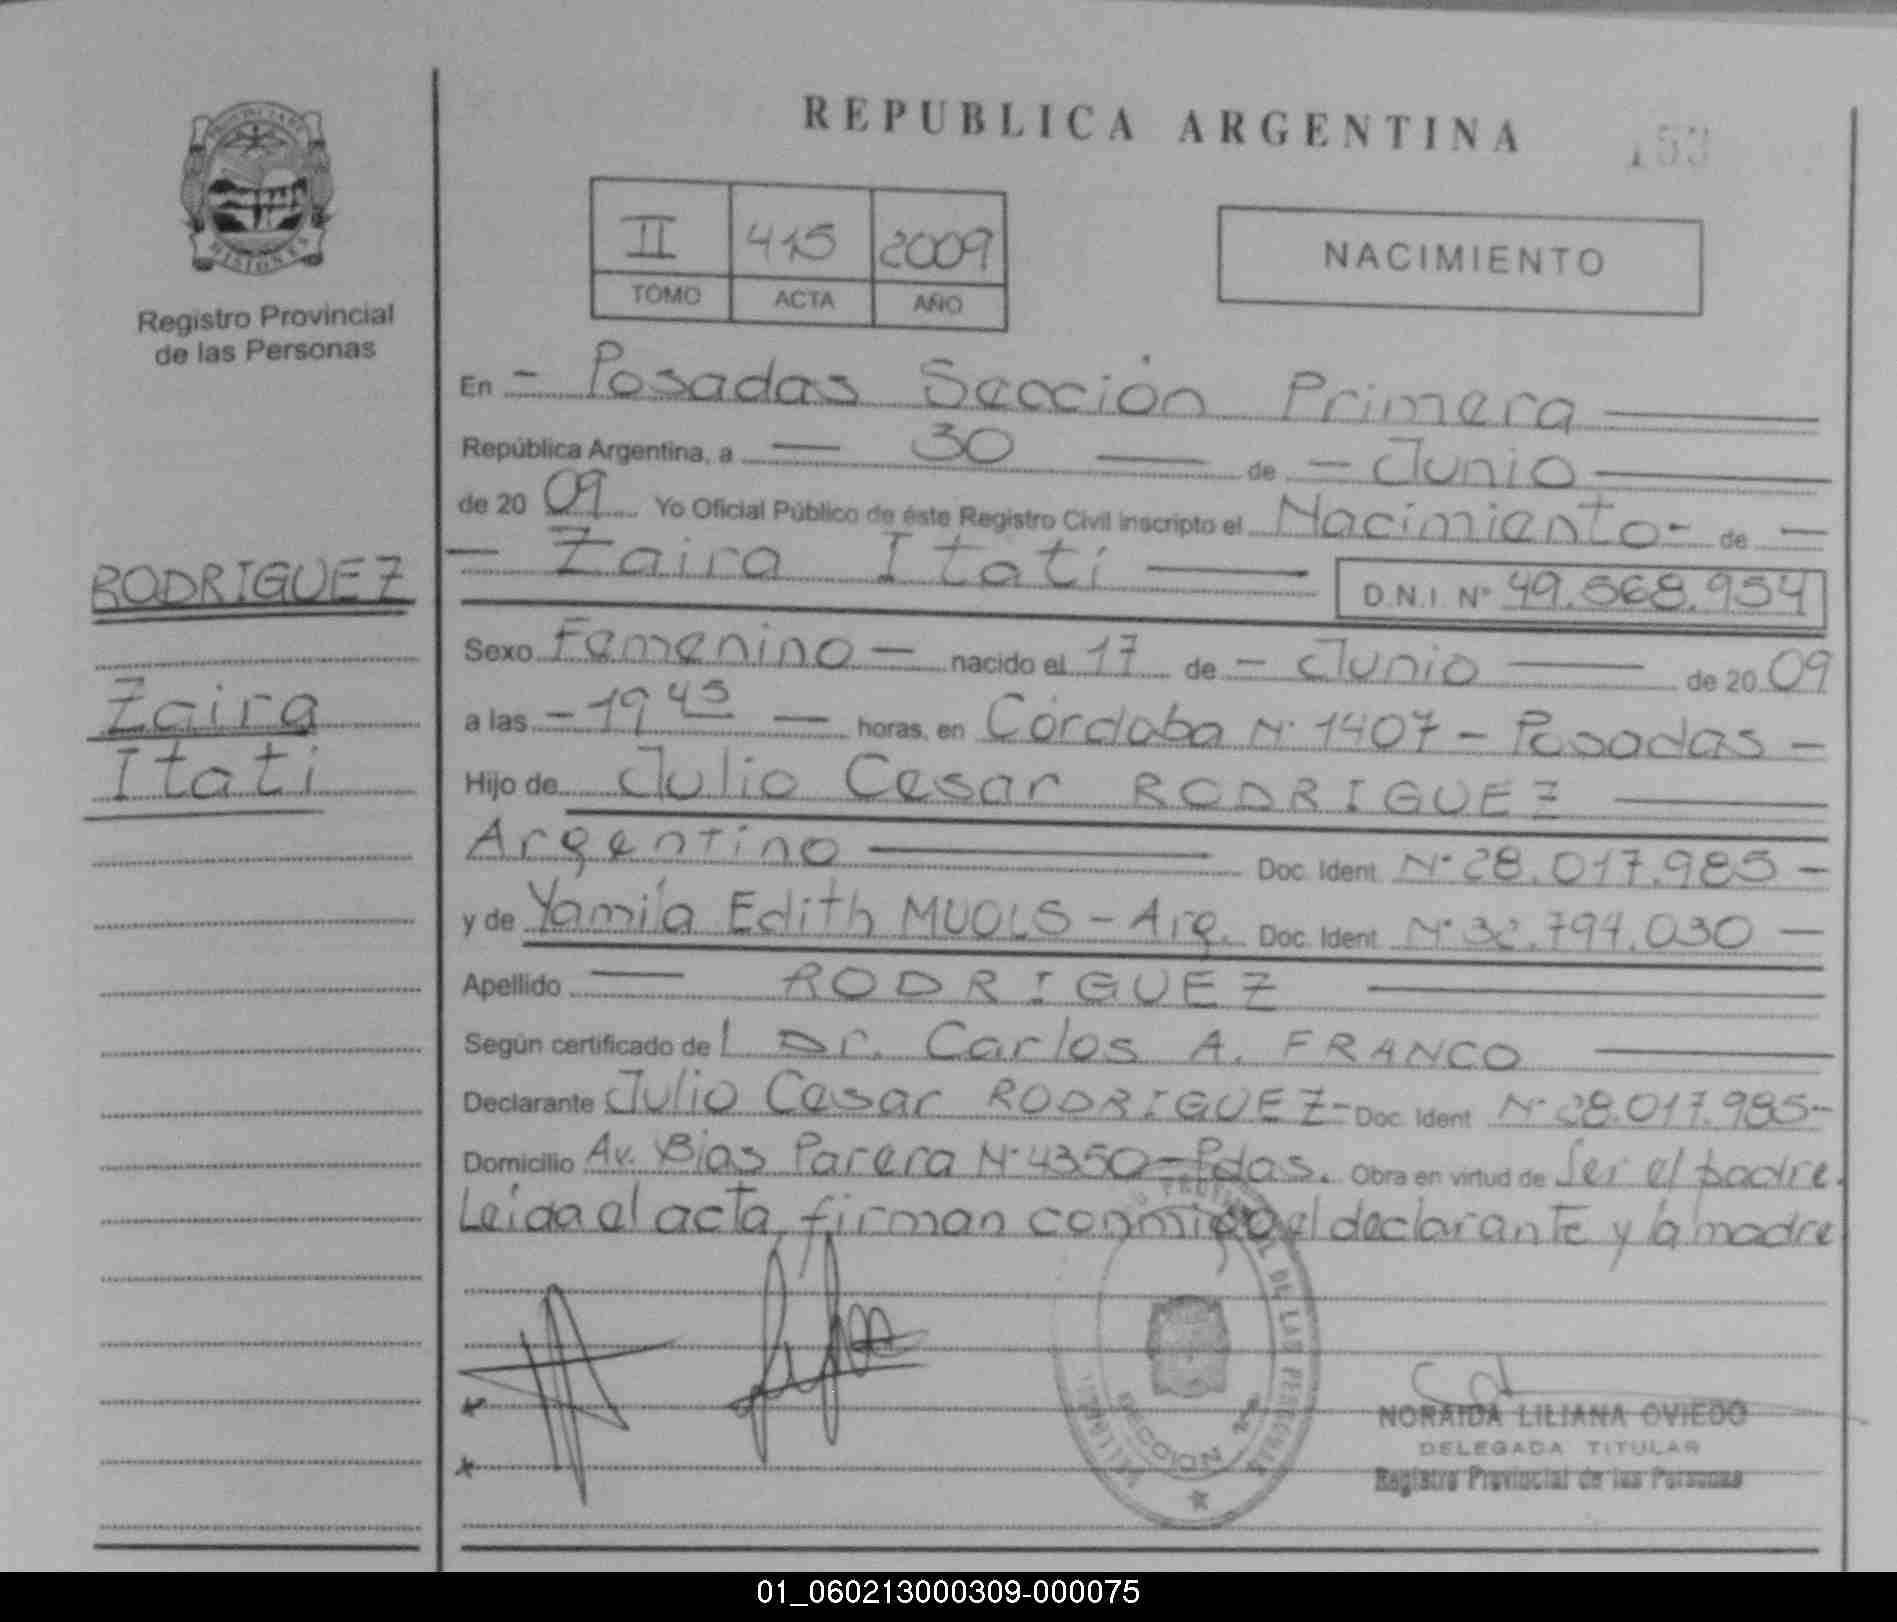 REPUBLICA ARGENTINA
153
PROVINCIA DE
MISIONES
Registro Provincial
de las Personas
II 415 2009
TOMO ACTA AÑO
NACIMIENTO
En - Posadas Sección Primera
República Argentina, a 30 de - Junio
de 20 09 Yo Oficial Público de éste Registro Civil inscripto el Nacimiento - de -
- Zaira Itatí
D.N.I. Nº 49.568.954
RODRIGUEZ
Zaira
Itati
Sexo Femenino - nacido el 17 de - Junio de 20 09
a las - 19 45 - horas, en Córdoba Nº 1407 - Posadas -
Hijo de Julio Cesar RODRIGUEZ
Argentino Doc. Ident. Nº 28.017.985 -
y de Yamila Edith MUOLS - Arg. Doc. Ident. Nº .794.030 -
Apellido RODRIGUEZ
Según certificado de l Dr. Carlos A. FRANCO
Declarante Julio Cesar RODRIGUEZ - Doc. Ident. Nº 28.017.985 -
Domicilio Av. Blas Parera Nº 4350 - Pdas. Obra en virtud de Ser el padre.
Leída el acta, firman conmigo el declarante y la madre
DE LAS PERSONAS
SECCION 1ra
NORAIDA LILIANA OVIEDO
DELEGADA TITULAR
Registro Provincial de las Personas
01_060213000309-000075